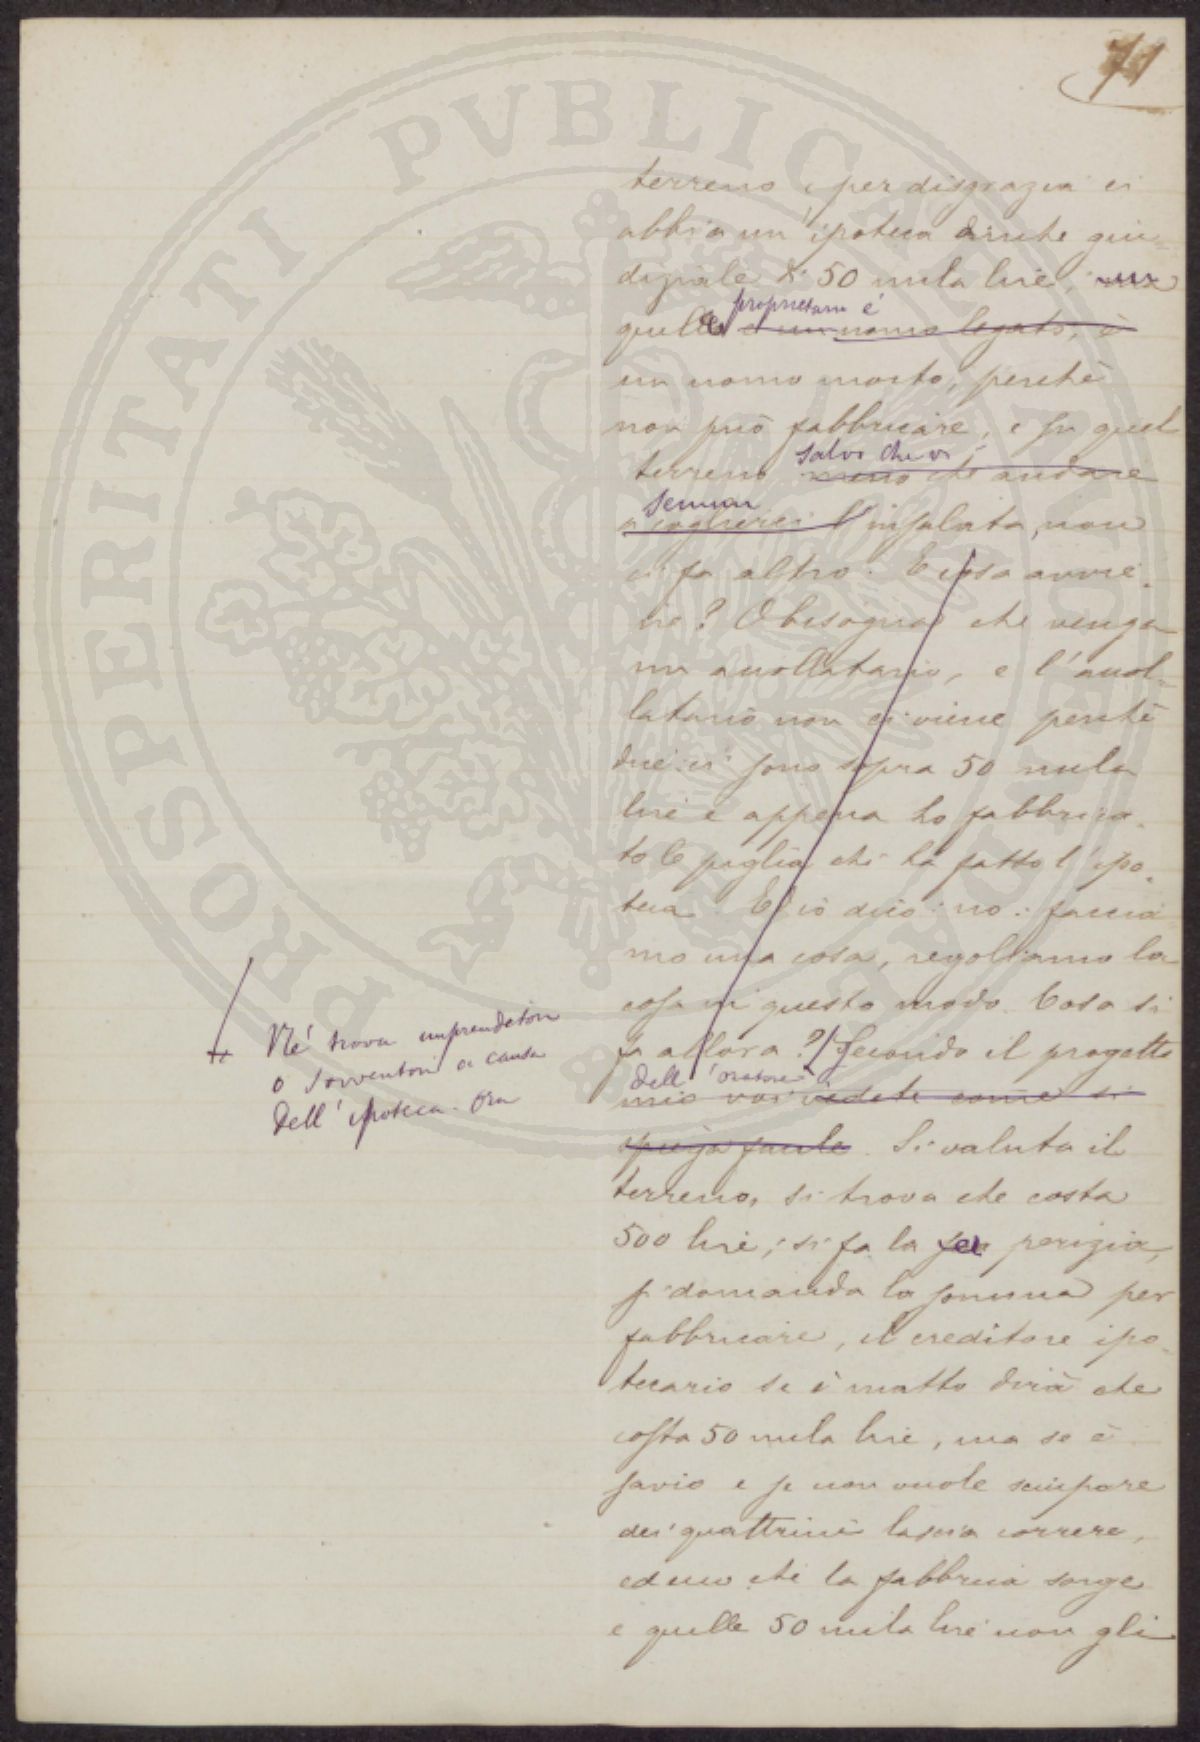 71
terreno, per disgrazia ci
abbia un'ipoteca anche giu-
diziale di 50 mila lire,
quel proprietario è
e un uomo legato, è
un uomo morto, perchè
non può fabbricare, e su quel
salvo che
terreno meno che andare
seminar
a coglierci l'insalata, non
ci fa altro. E cosa avvie-
ne? O bisogna che venga
un accollatario, e l'accol-
latario non ci viene perchè
dice: ci sono sopra 50 mila
lire e appena ho fabbrica-
to le piglia chi ha fatto l'ipo-
teca. E io dico: no: faccia-
mo una cosa, regoliamo la
cosa in questo modo. Cosa si
fa allora? Secondo il progetto
dell'oratore
mio voi vedete come si
spiega facile. Si valuta il
terreno, si trova che costa
500 lire; si fa la perizia,
si domanda la somma per
fabbricare, il creditore ipo-
tecario se è matto dirà che
costa 50 mila lire, ma se è
savio e se non vuole sciupare
dei quattrini lascia correre,
ecco che la fabbrica sorge
e quelle 50 mila lire non gli
Nè trova imprenditori
o sovventori a causa
dell'ipoteca. Ora
PROSPERITATI PVBLICAE